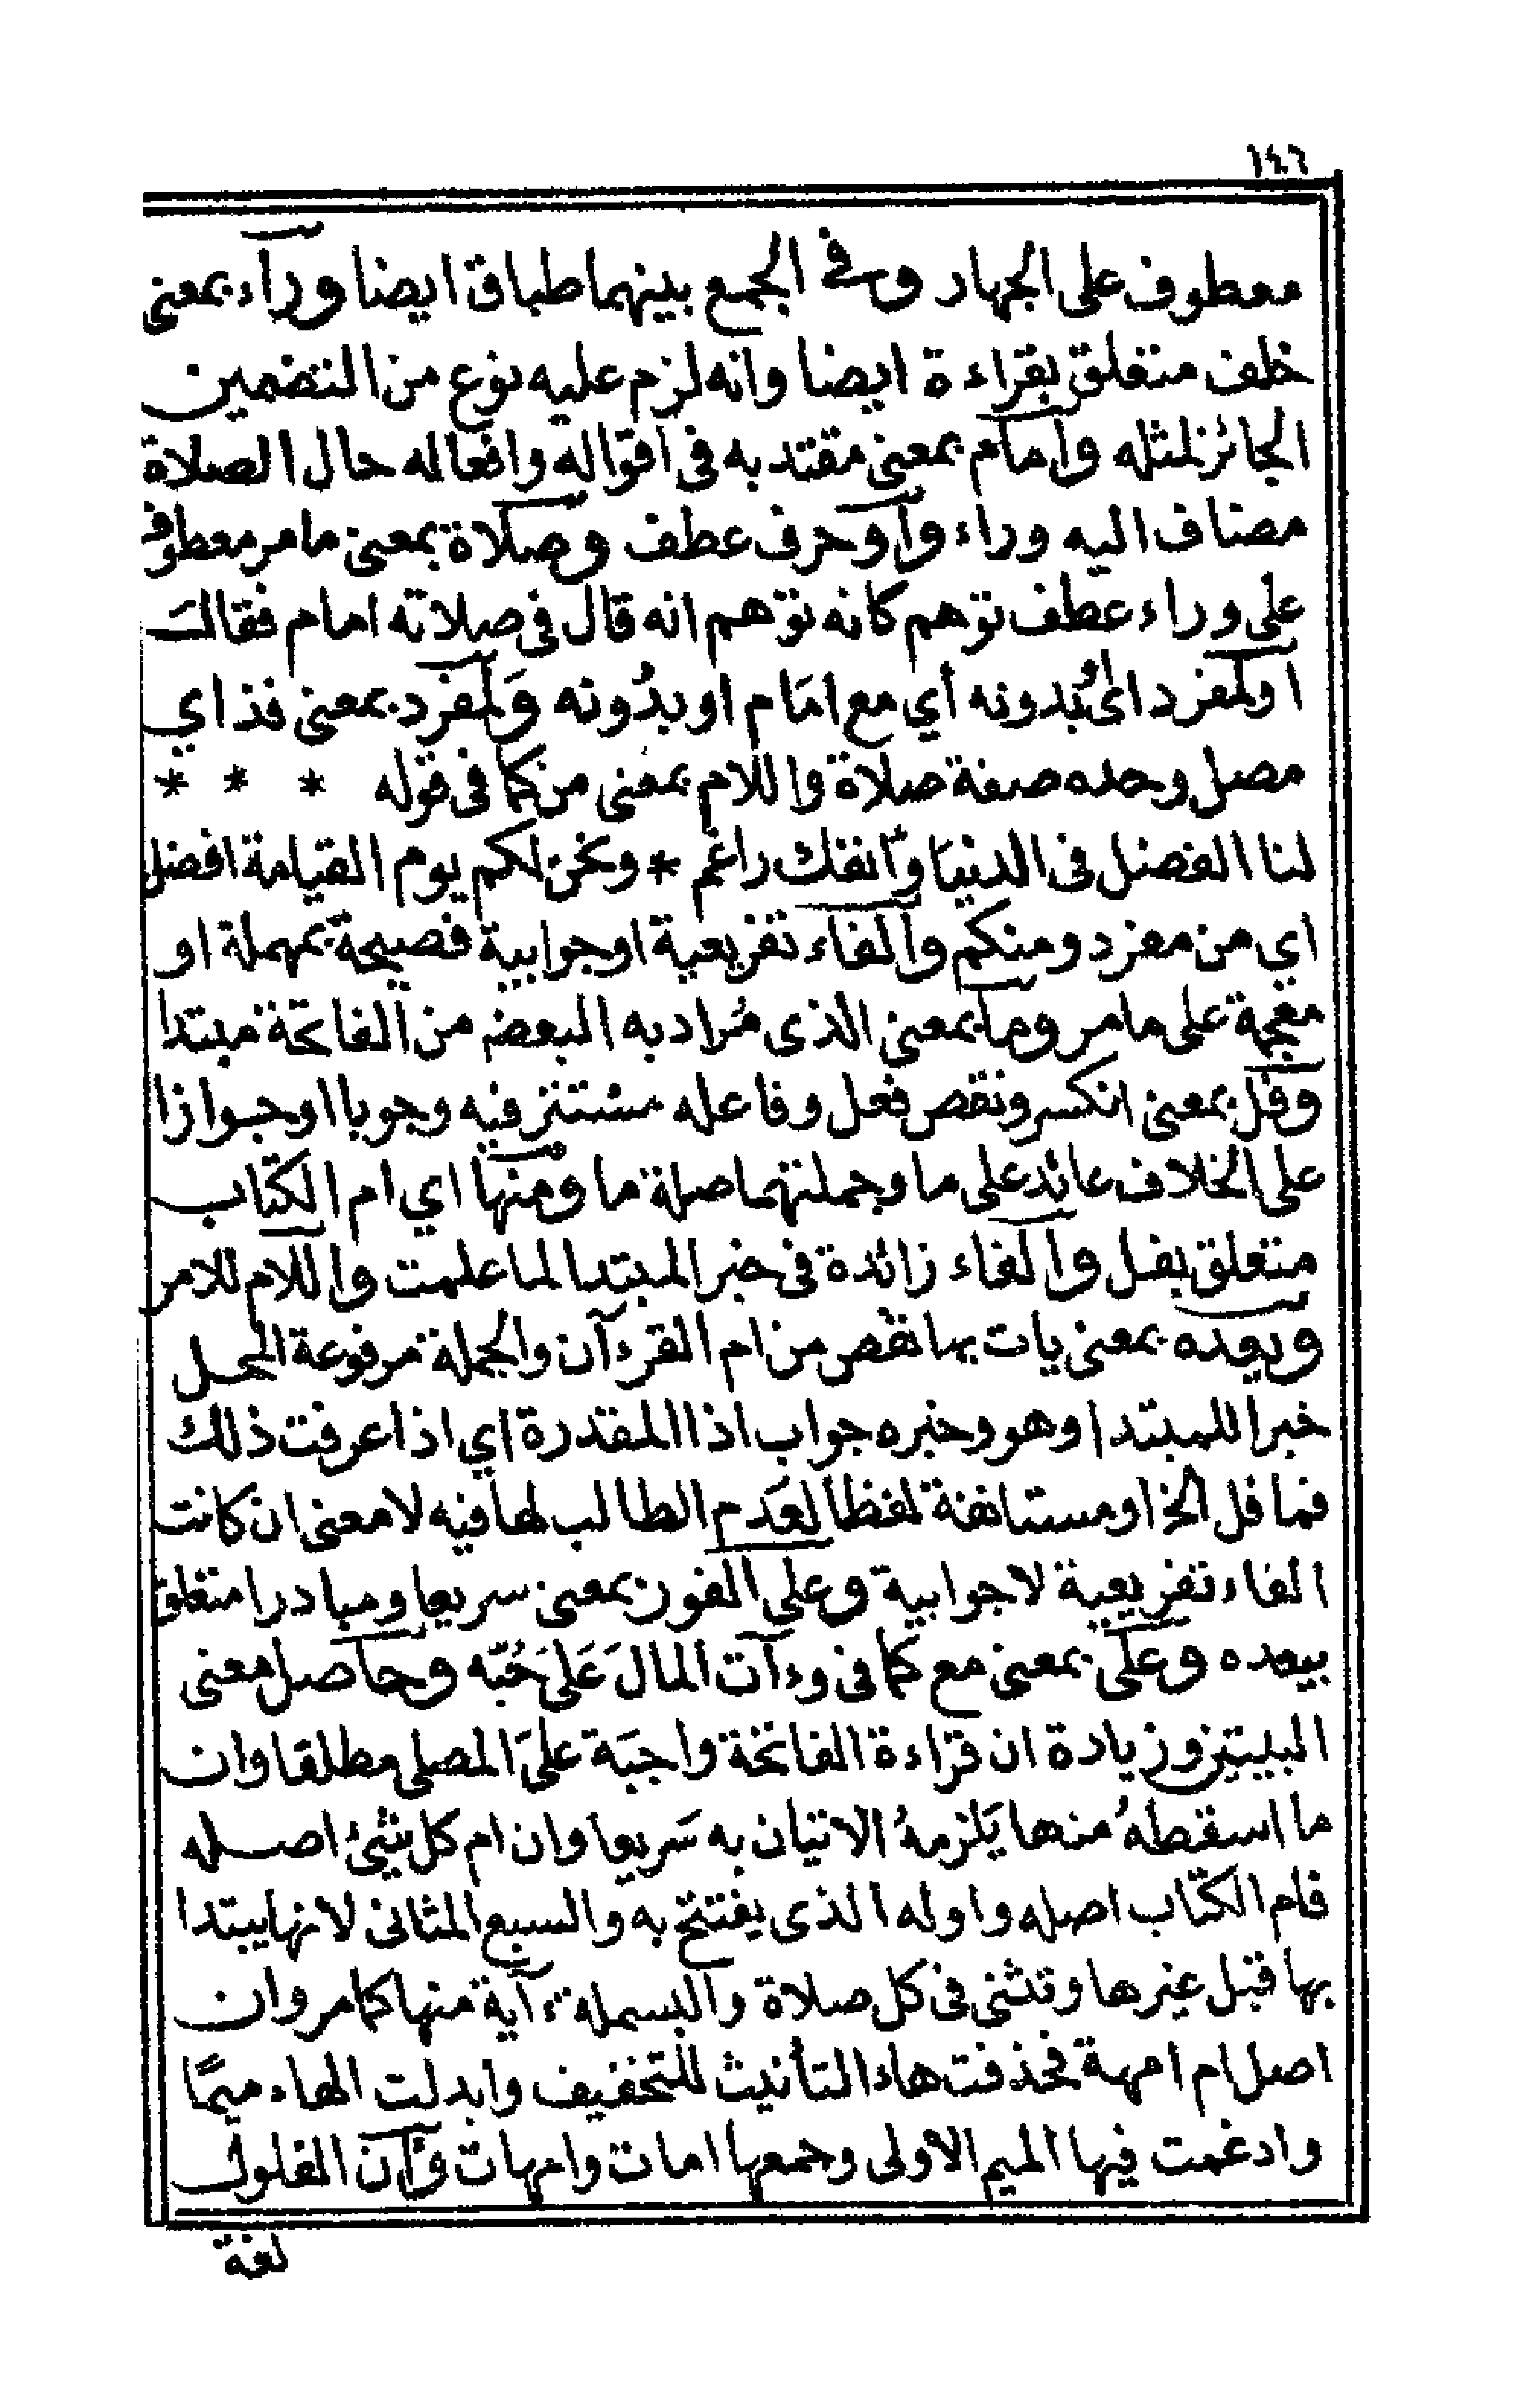 ١٤٦
معطوف على الجهاد وفي الجمع بينهما طباق ايضا ورآء بمعنى
خلف متعلق بقراءة ايضا وانه لزم عليه نوع من التضمين
الجائز لمثله وامام بمعنى مقتد به في اقواله وافعاله حال الصلاة
مضاف اليه وراء وأو حرف عطف وصلاة بمعنى ما مر معطوف
على وراء عطف توهم كانه توهم انه قال في صلاته امام فقالــ
او لمفرد اي بُدونه أي مع امَام او بدُونه وَلمفرد بمعنى فذ اي
مصل وحده صفة صلاة واللام بمعنى من كما في قوله * * *
لنا الفضل في الدنيا وأنفك راغم * ونحن لكم يوم القيامة افضل
اي من مفرد ومنكم والفاء تفريعية او جوابية فصيحة بمهملة او
معجمة على ما مر وما بمعنى الذى مُراد به البعض من الفاتحة مبتدا
وفل بمعنى انكسر ونقص فعل وفاعله مستتر فيه وجوبا او جوازا
على الخلاف عائد على ما وجملتهما صلة ما ومنها اي ام الكتاب
متعلق بفل والفاء زائدة في خبر المبتدا لما علمت واللام للامر
ويعده بمعنى يات بها نقص من ام القرءآن والجملة مرفوعة المحل
خبرا للمبتدا وهو وخبره جواب اذا المقدرة اي اذا عرفت ذلك
فما فل الخ او مستانفة لفظا لعَدم الطالب لها فيه لا معنى ان كانت
الفاء تفريعية لا جوابية وعلى الفور بمعنى سريعا ومبادرا متعلق
بيعده وعلى بمعنى مع كما في وءآت المالَ عَلىَ حُبّه وحاصل معنى
البيتين وزيادة ان قراءة الفاتحة واجبَة علىَ المصلى مطلقا وان
ما اسقطهُ منها يَلزمهُ الاتيان به سَريعا وان ام كل شيئ اصله
فام الكتاب اصله واوله الذى يفتتح به والسبع المثانى لانها يبتدا
بها قبل غيرها وتثنى في كل صلاة والبسملة ءآية منها كما مر وان
اصل ام امهة فحذفت هاء التأنيث للتخفيف وابدلت الهاء ميمًا
وادغمت فيها الميم الاولى وجمعها امات وامهات وأن الفلول
لغة